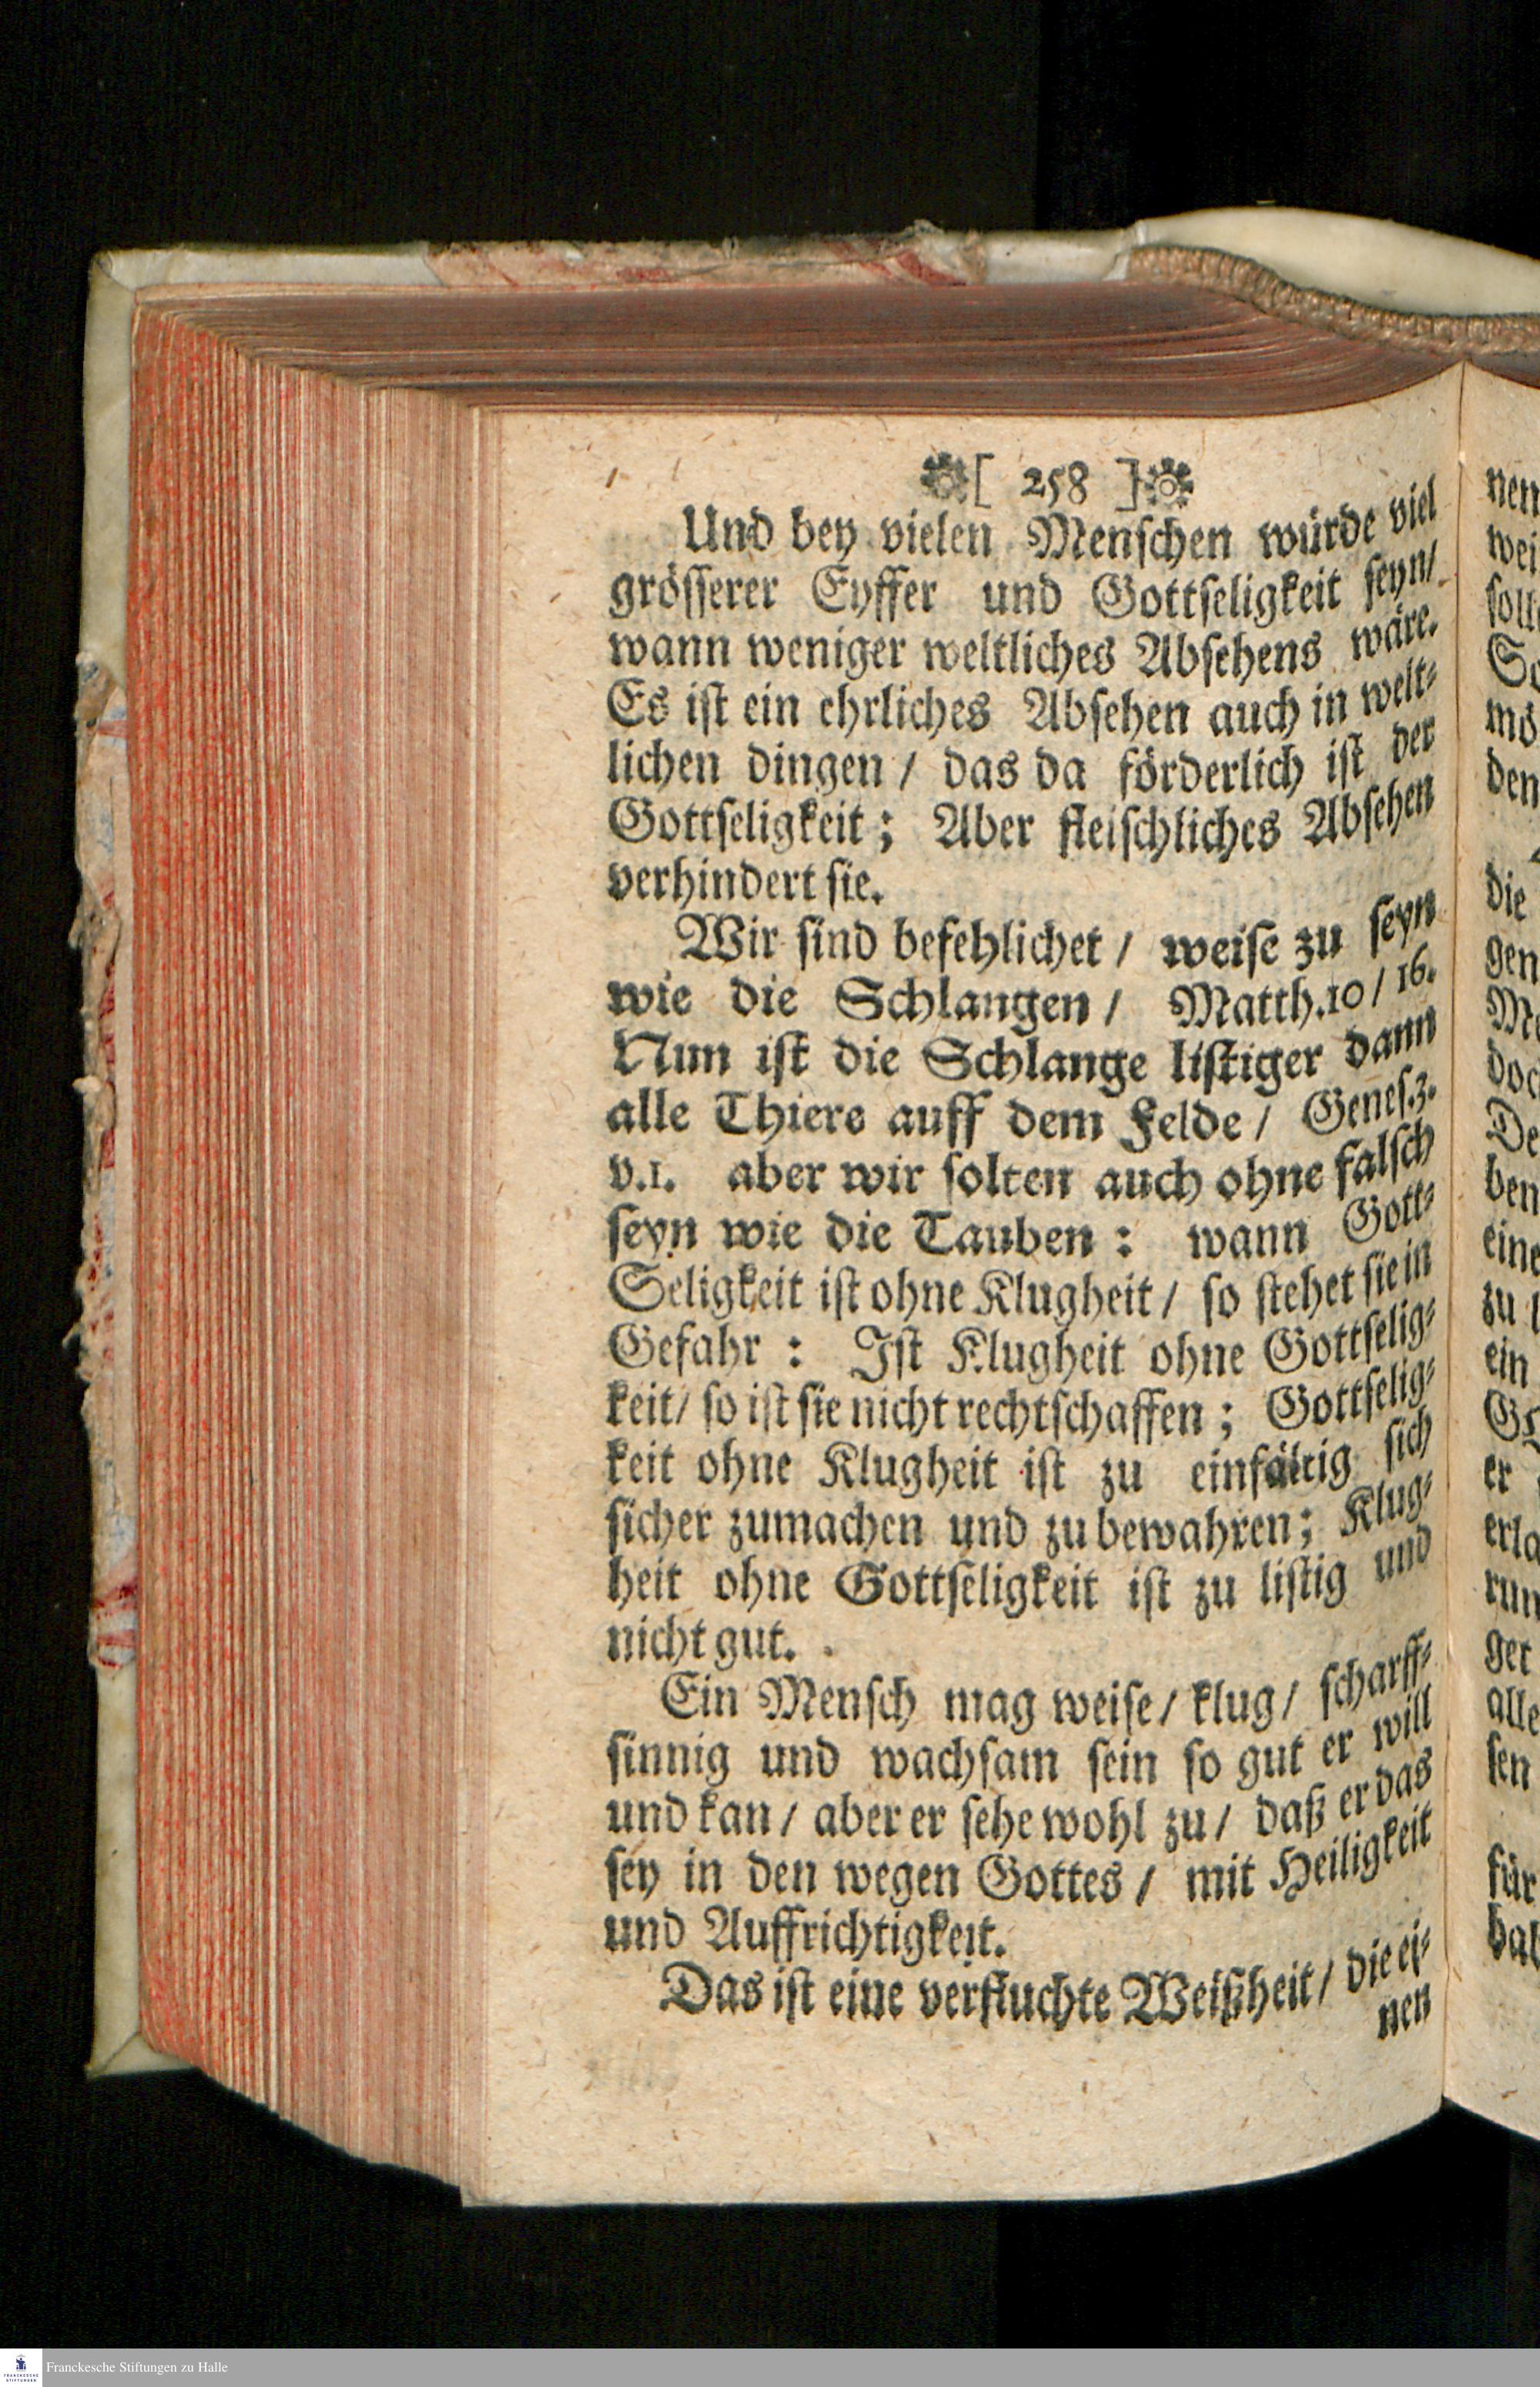 [ 258 ]
Und bey vielen Menschen würde viel
grösserer Eyffer und Gottseligkeit seyn/
wann weniger weltliches Absehens wäre.
Es ist ein ehrliches Absehen auch in welt-
lichen dingen / das da förderlich ist der
Gottseligkeit; Aber fleischliches Absehen
verhindert sie.
Wir sind befehlichet / weise zu seyn
wie die Schlangen / Matth.10 / 16.
Nun ist die Schlange listiger dann
alle Thiere auff dem Felde / Genes.3.
v.1. aber wir solten auch ohne falsch
seyn wie die Tauben : wann Gott-
Seligkeit ist ohne Klugheit / so stehet sie in
Gefahr : Ist Klugheit ohne Gottselig-
keit/ so ist sie nicht rechtschaffen ; Gottselig-
keit ohne Klugheit ist zu einfältig sich
sicher zumachen und zu bewahren; Klug-
heit ohne Gottseligkeit ist zu listig und
nicht gut.
Ein Mensch mag weise / klug / scharff-
sinnig und wachsam sein so gut er will
und kan / aber er sehe wohl zu / daß er das
sey in den wegen Gottes / mit Heiligkeit
und Auffrichtigkeit.
Das ist eine verfluchte Weißheit / die ei-
nen
nen
wei
soll
So
mö
den
die
gen
doc
De
ben
eine
zu
ein
er
erla
run
ger
alle
sen
für
Franckesche Stiftungen zu Halle
FRANCKESCHE
STIFTUNGEN